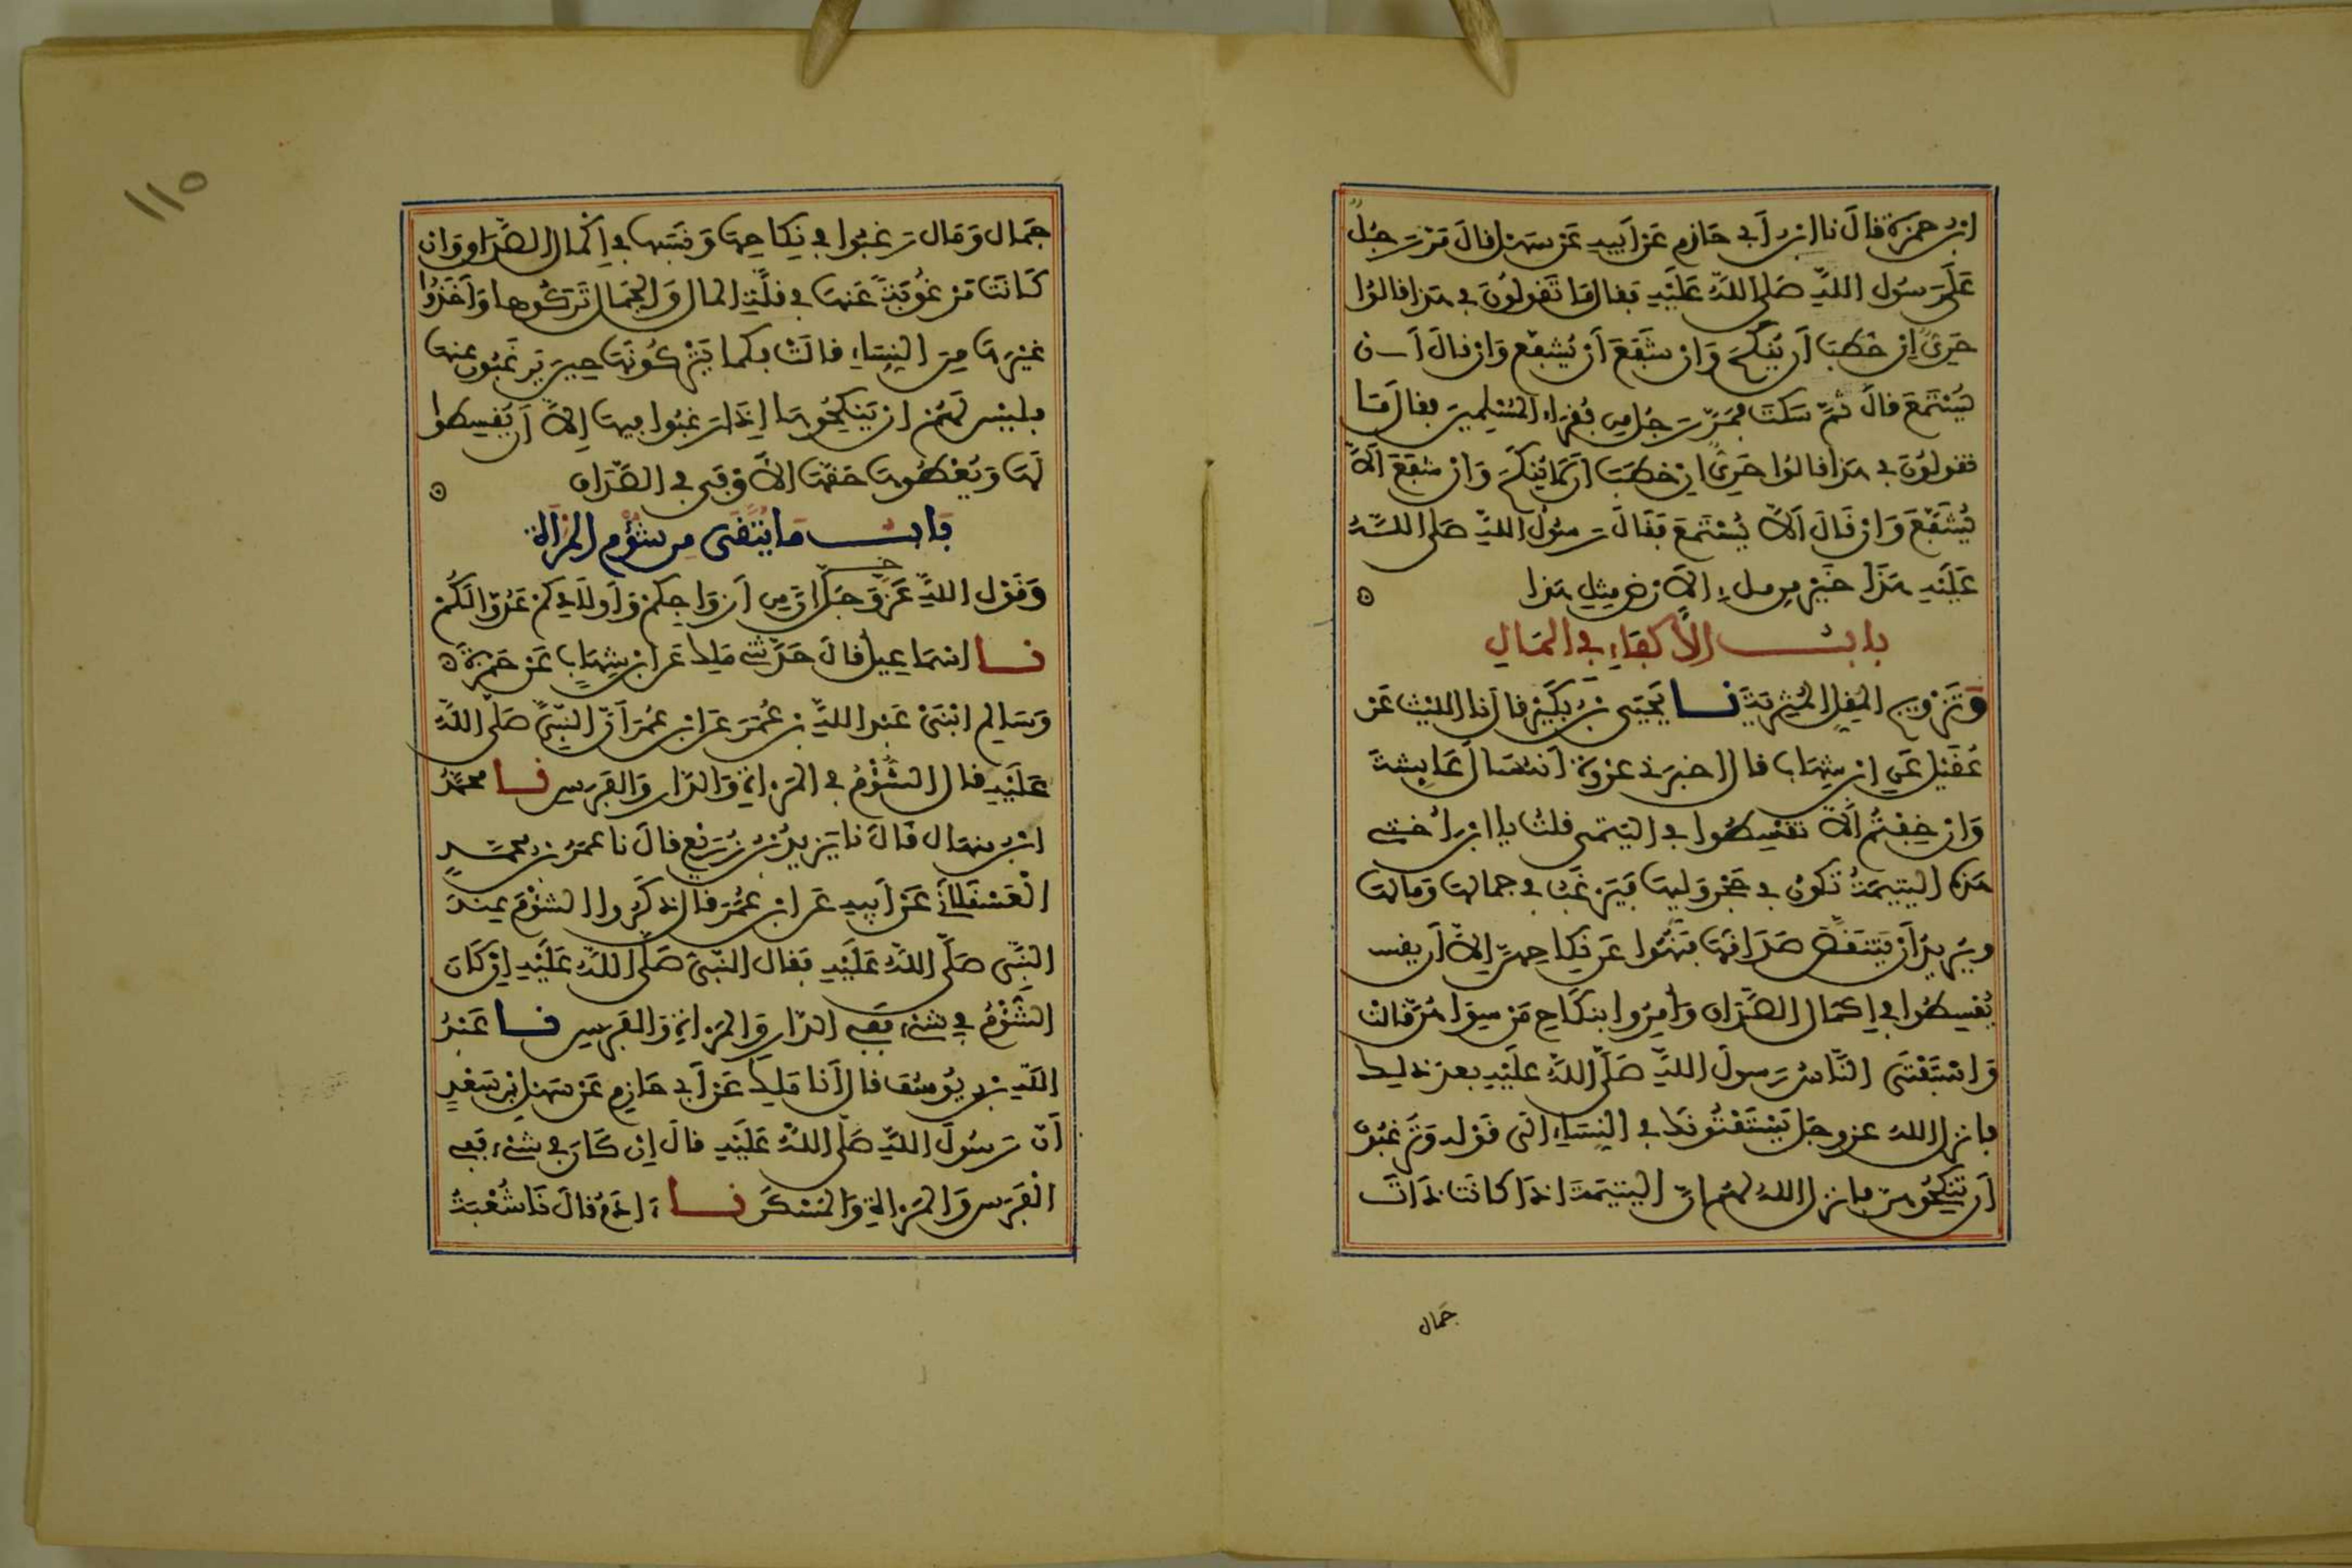 ابن حمزة قال نا ابن أبي حازم عن أبيه عن سهل قال مر رجل
على رسول الله صلى الله عليه فقال ما تقولون في هذا قالوا
حري إن خطب أن ينكح وإن شفع أن يشفع وإن قال أن
يستمع قال ثم سكت فمر رجل من فقراء المسلمين فقال ما
تقولون في هذا قالوا حري إن خطب ألا ينكح وإن شفع ألا
يشفع وإن قال ألا يستمع فقال رسول الله صلى الله
عليه هذا خير من ملء الأرض مثل هذا
باب الأكفاء في المال
وتزويج المقل المثرية نا يحيى بن بكير قال نا الليث عن
عقيل عن ابن شهاب قال أخبرني عروة أنه سأل عائشة
وإن خفتم ألا تقسطوا في اليتمى قلت يا ابن أختي
هذه اليتيمة تكون في حجر وليها فيرغب في جمالها ومالها
ويريد أن ينتقص صداقها فنهوا عن نكاحهن إلا أن يقسـ
يقسطوا في إكمال الصداق وأمروا بنكاح من سواهن قالت
واستفتى الناس رسول الله صلى الله عليه بعد ذلك
فأنزل الله عز وجل يستفتونك في النساء إلى قوله وترغبون
أن تنكحوهن فأنزل الله لهم أن اليتيمة إذا كانت ذات
جمال
١١٥
جمال ومال رغبوا في نكاحها ونسبها في إكمال الصداق وإن
كانت مرغوبة عنها في قلة المال والجمال تركوها وأخذوا
غيرها من النساء قالت فكما يتركونها حين يرغبون عنها
فليس لهم أن ينكحوها إذا رغبوا فيها إلا أن يقسطوا
لها ويعطوها حقها الأوفى في الصداق
باب ما يتقى من شؤم المرأة
وقول الله عز وجل إن من أزواجكم وأولادكم عدوا لكم
نا إسماعيل قال حدثني ملك عن ابن شهاب عن حمزة
وسالم ابني عبد الله بن عمر عن ابن عمر أن النبي صلى الله
عليه قال الشؤم في المرأة والدار والفرس نا محمد
ابن منهال قال نا يزيد بن زريع قال نا عمر بن محمد
العسقلاني عن أبيه عن ابن عمر قال ذكروا الشؤم عند
النبي صلى الله عليه فقال النبي صلى الله عليه إن كان
الشؤم في شيء ففي الدار والمرأة والفرس نا عبد
الله بن يوسف قال أنا ملك عن أبي حازم عن سهل بن سعد
أن رسول الله صلى الله عليه قال إن كان في شيء ففي
الفرس والمرأة والمسكن نا ءادم قال نا شعبة